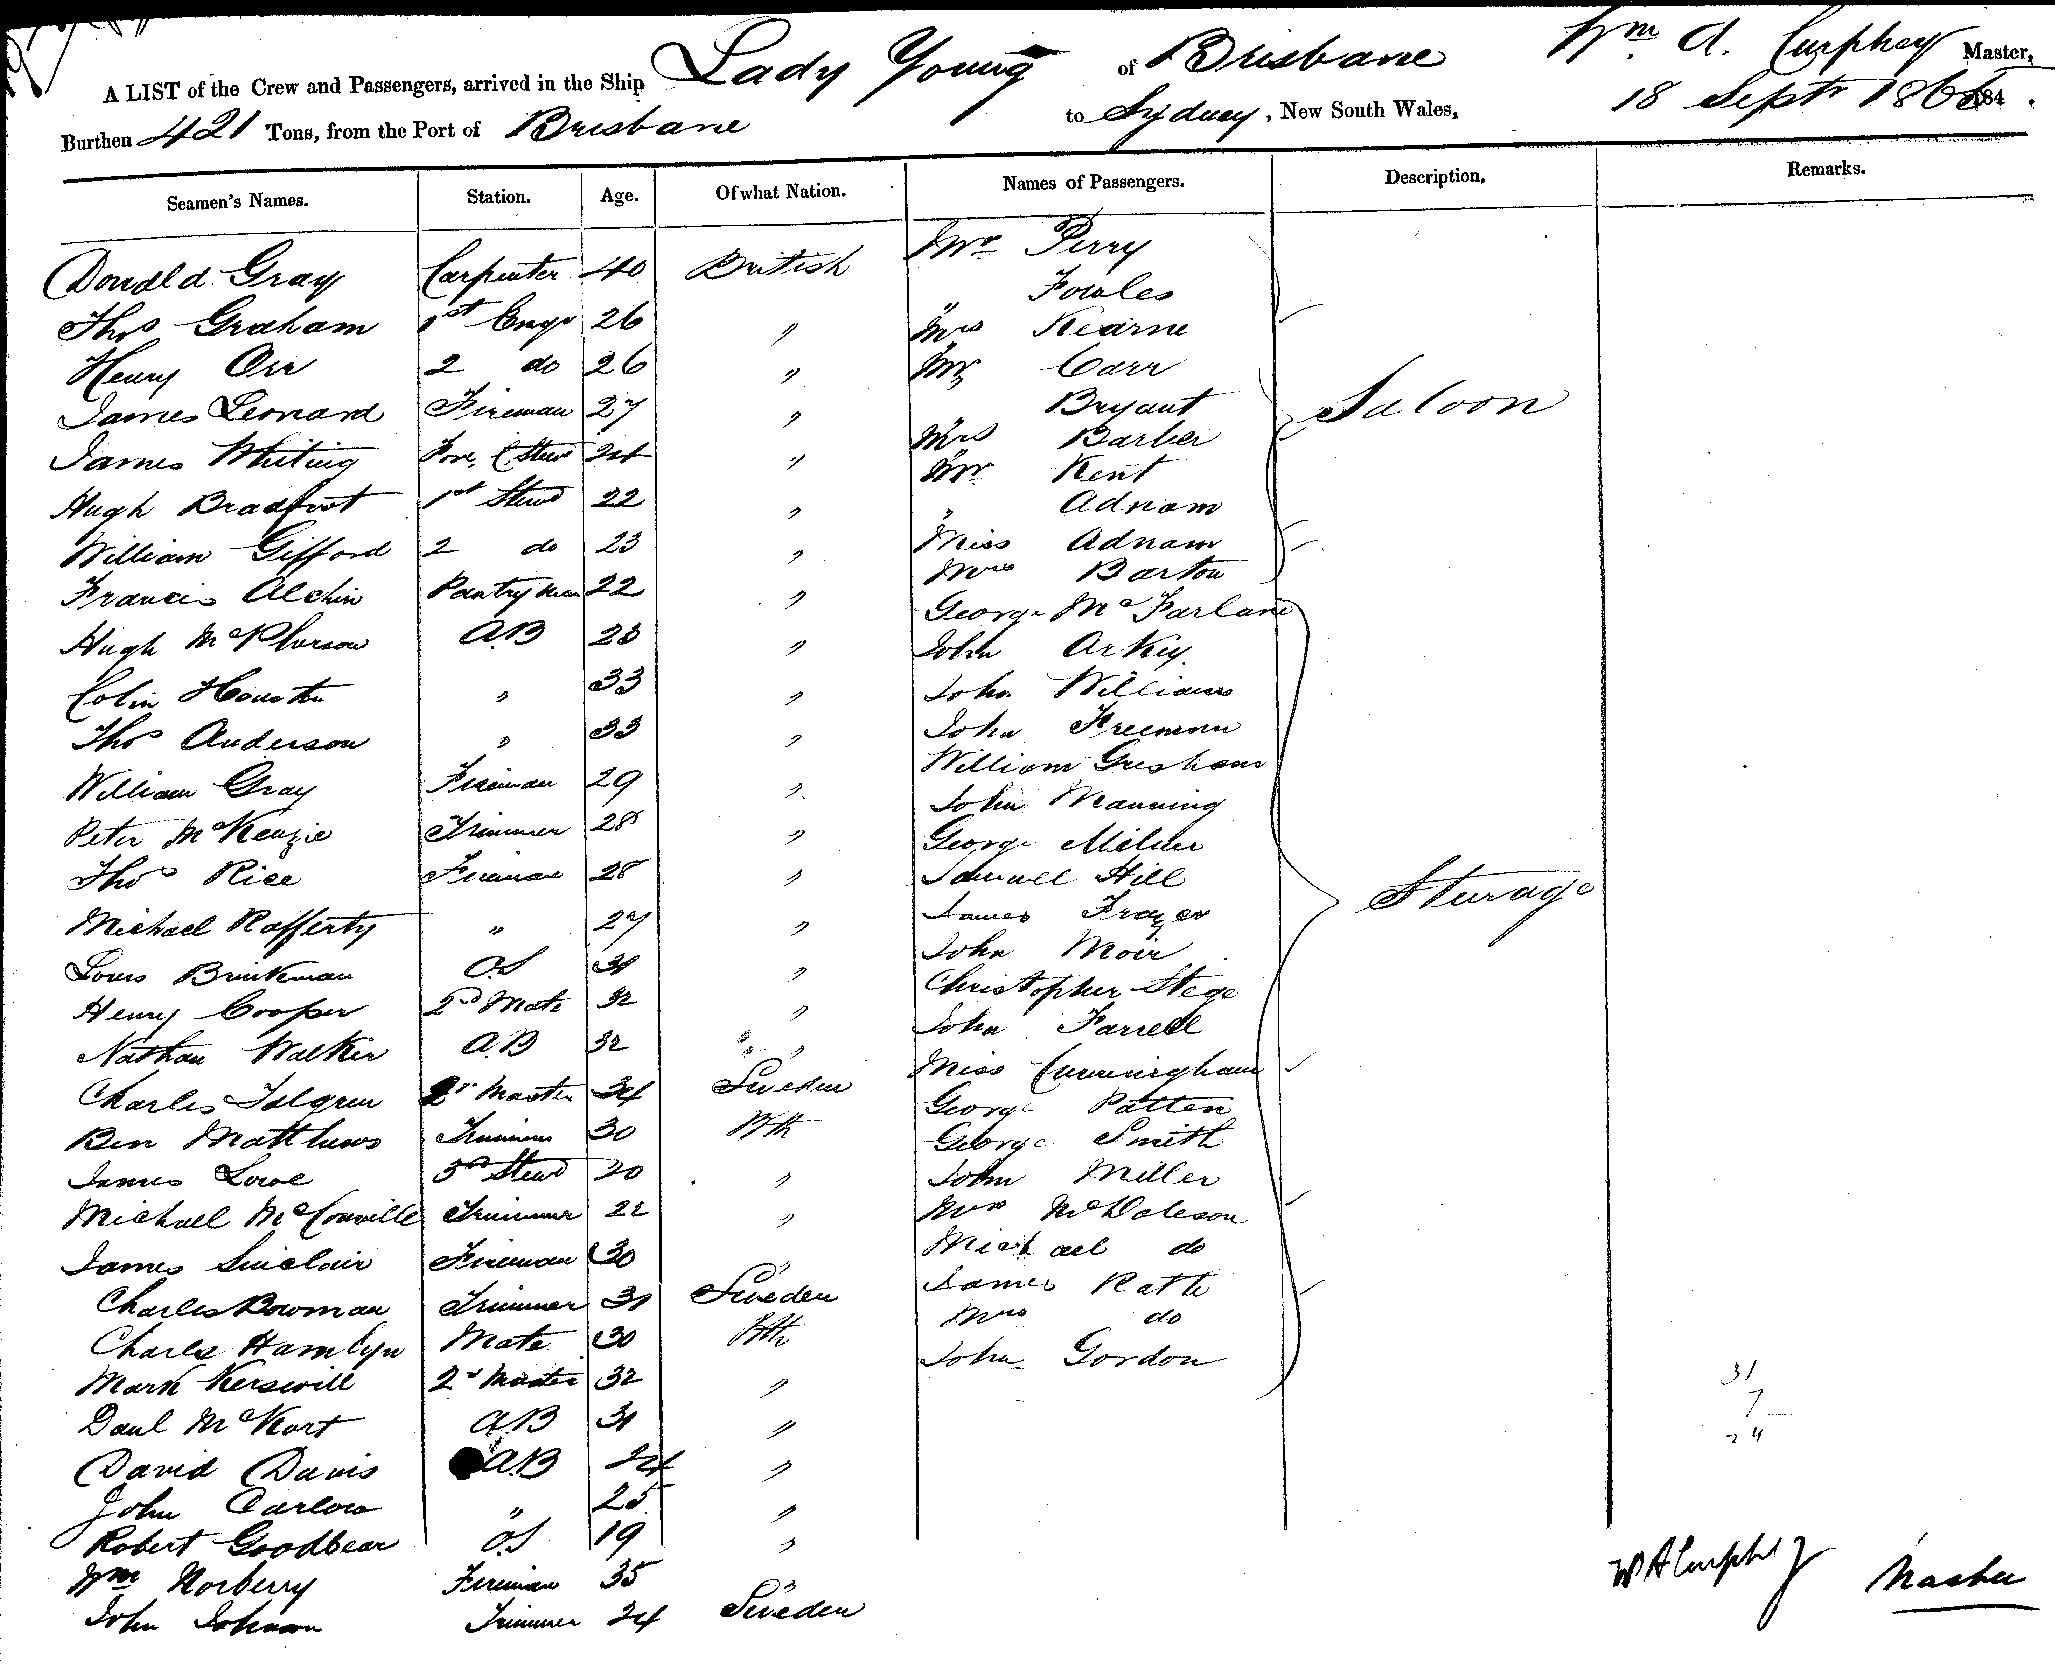 A LIST of the Crew and Passengers, arrived in the Ship Lady Young of Brisbane Wm A. Curphey Master,
Burthen 421 Tons, from the Port of Brisbane to Sydney, New South Wales, 18 Septr 186 184
Seamen's Names. Station. Age. Of what Nation. Names of Passengers. Description. Remarks.
Donald Gray Carpenter 40 British Mr Perry
Thos Graham 1st Engr 26 " " Fowles
Henry Orr 2 do 26 " Mrs Kearne
James Leonard Fireman 27 " Mr Carr
James Whiting Fore C Stew 24 " Bryant
Hugh Bradfoot 1st Stewd 22 " Mrs Barber
William Gifford 2 do 23 " Mr Kent
Francis Alchin Pantryman 22 " " Adnam
Hugh McPherson A.B 28 " Miss Adnam
Colin Houston " 33 " Mrs Barton
Saloon
Thos Anderson " 33 " George McFarlane
William Gray Fireman 29 " John Arkey
Peter McKenzie Trimmer 28 " John Williams
Thos Rice Fireman 28 " John Freeman
Michael Rafferty " 27 " William Gresham
Louis Brinkman O.S 31 " John Manning
Henry Cooper 2nd Mate 32 " George Milner
Nathan Walker A.B 32 " Samuell Hill
Charles Tolgren 2r Master 34 Sweden James Frazer
Ben Matthews Trimmer 30 Bth John Moir
James Lowe 3rd Stewd 20 " Christopher Stege
Michael McConville Trimmer 22 " John Farrell
James Sinclair Fireman 30 " Miss Cunningham
Charles Bowman Trimmer 31 Sweden George Patten
Charles Hamlyn Mate 30 Bth George Smith
Mark Kerswill 2r Master 32 " John Miller
Danl McKort A.B 31 " Mrs McDoleson
David Davis A.B 24 " Michael do
John Carlow " 25 " James Rath
Robert Goodbear O.S 19 " Mrs do
Wm Norberry Fireman 35 " John Gordon
John Johnson Trimmer 24 Sweden
Sturage
31
7
24
W A Curphey Master